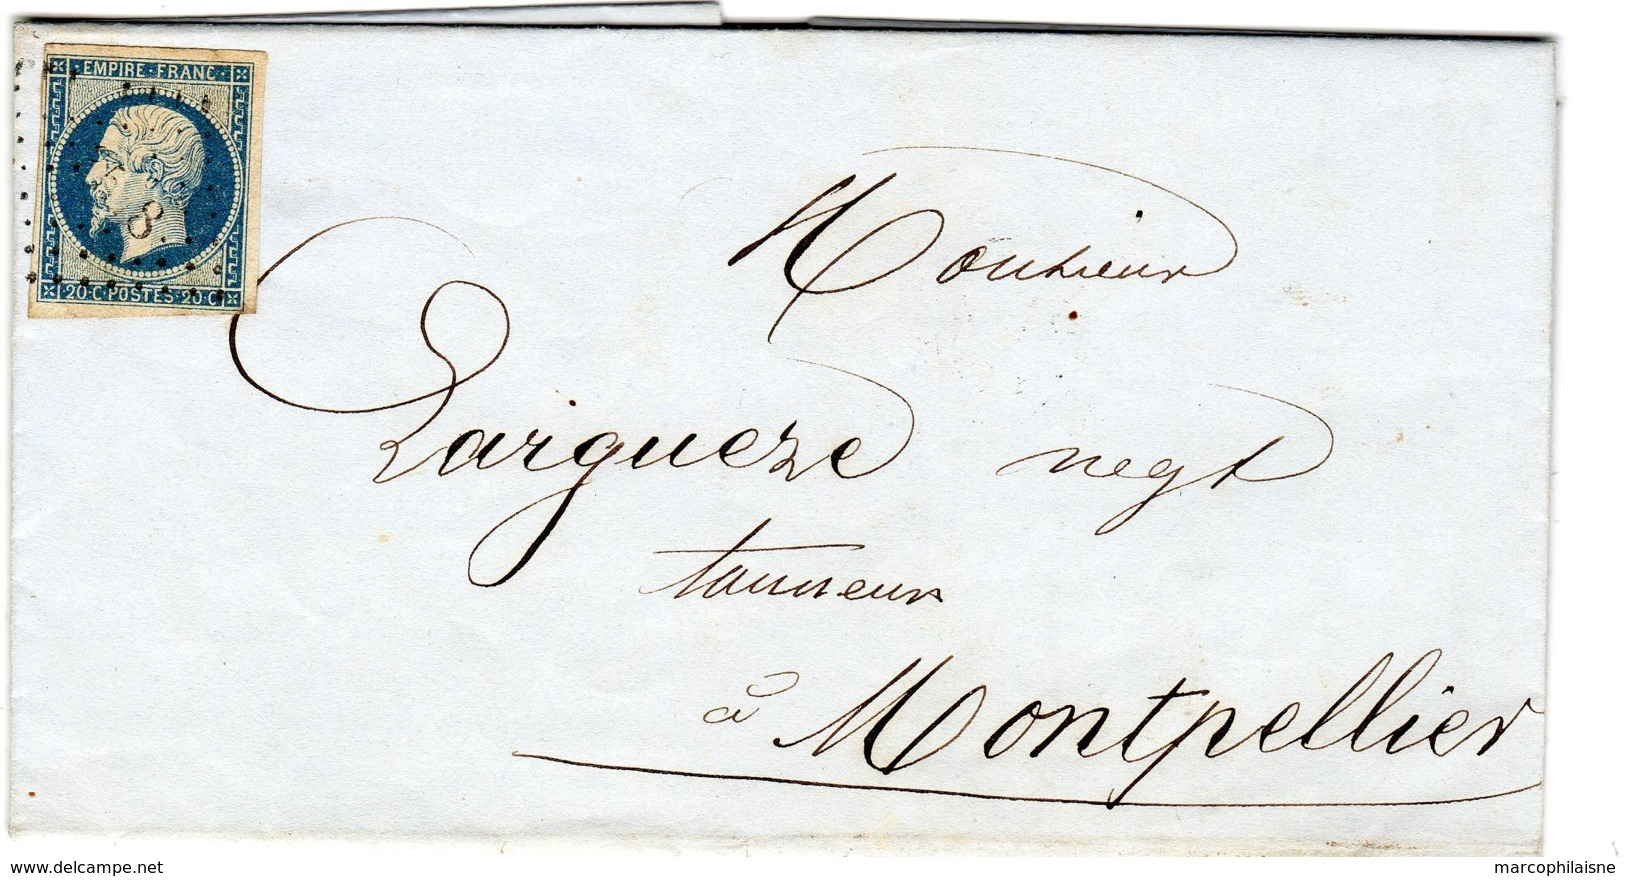 EMPIRE·FRANC·
8
20·C·POSTES·20·C·
Monsieur
Largueze negt
tanneur
à Montpellier
www.delcampe.net
marcophilaisne